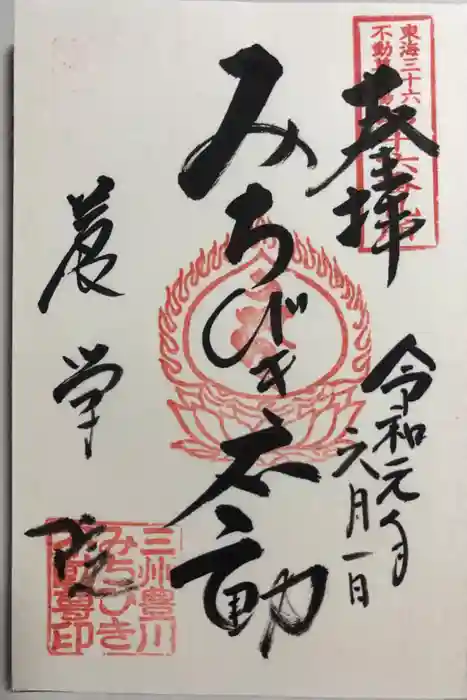 東海三十六
不動尊
奉拝
令和元年
六月一日
みちびき不動
三州豊川
みちびき
不動尊印
養学院